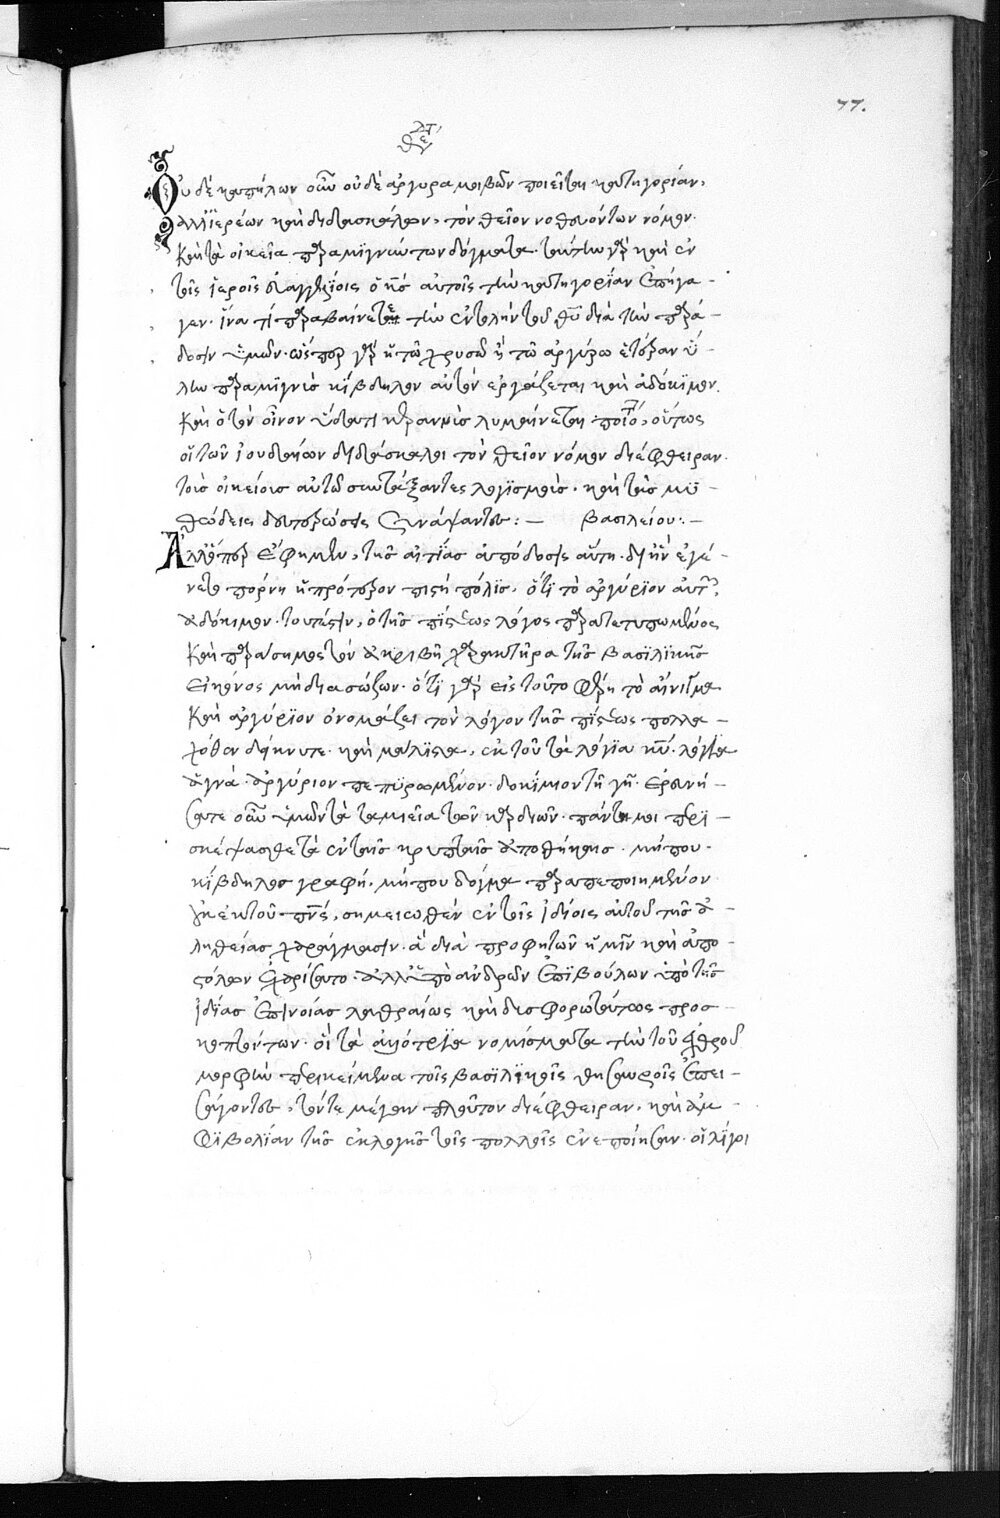 77.
Οὐ δὲ καπήλων οὖν οὐδὲ ἀργυραμοιβῶν ποιεῖται κατηγορίαν,
ἀλλ' ἱερέων καὶ διδασκάλων, τὸν θεῖον νοθευόντων νόμον.
καὶ τὰ οἰκεῖα παραμιγνύντων δόγματα. ταύτην γὰρ καὶ ἐν
τοῖς ἱεροῖς εὐαγγελίοις ὁ κς αὐτοῖς τὴν κατηγορίαν ἐπήγα-
γεν. ἵνα τί παραβαίνετε τὴν ἐντολὴν τοῦ θυ διὰ τὴν παρά-
δοσιν ὑμῶν. ὥσπερ γὰρ ἢ τῶ χρυσῶ ἢ τῶ ἀργύρω ἑτέραν ὕ-
λην παραμιγνὺς κίβδηλον αὐτὸν ἐργάζεται καὶ ἀδόκιμον.
καὶ ὁ τὸν οἶνον ὕδατι κεραννὺς λυμαίνεται ποτὸ, οὕτως
οἱ τῶν ἰουδαίων διδάσκαλοι τὸν θεῖον νόμον διέφθειραν.
τοὺς οἰκείους αὐτῶ συντάξαντες λογισμοὺς. καὶ τὰς μυ-
θώδεις δευτερώσεις συνάψαντες :- βασιλείου :-
Ἀλλ' ὅπερ ἔφημεν, τῆς αἰτίας ἀπόδοσις αὕτη. δι' ἣν ἐγέ-
νετο πόρνη ἡ πρότερον πιστὴ πόλις, ὅτι τὸ ἀργύριον αὐτῆς
ἀδόκιμον. τουτέστιν, ὁ τῆς πίστεως λόγος παρατετυπωμένος
καὶ παράσημος τὸν ἀκριβῆ χαρακτῆρα τῆς βασιλικῆς
εἰκόνος μὴ διασώζων. ὅτι γὰρ εἰς τοῦτο φέρει τὸ αἴνιγμα
καὶ ἀργύριον ὀνομάζει τὸν λόγον τῆς πίστεως πολλα-
χόθεν δείκνυται. καὶ μάλιστα, ἐκ τοῦ τὰ λόγια κυ. λόγια
ἁγνὰ. ἀργύριον πεπυρωμένον. δοκίμιον τῆ γῆ. ἐρευνή-
σατε οὖν ὑμῶν τὰ ταμιεῖα τῶν καρδιῶν. πάντα μοι περι-
σκέψασθε τὰ ἐν ταῖς κρυπταῖς ἀποθήκαις. μήπου.
κίβδηλος γραφὴ, μήπου δόγμα παραπεποιημένον
οὐκ ἐκ τοῦ πνς, σημειωθέν ἐν τοῖς ἰδίοις αὐτοῦ τῆς ἀ-
ληθείας χαράγμασιν. ἃ διὰ προφητῶν ἡμῖν καὶ ἀπο-
στόλων ἐχαρίσατο. ἀλλ' ὑπὸ ἀνδρῶν ἐπιβούλων ὑπὸ τῆς
ἰδίας ἐπινοίας λαθραίως καὶ δυσφορωτάτως προσ-
κοπτόντων. οἳ τὰ ἀλλότρια νομίσματα τὴν τοῦ ἐχθροῦ
μορφὴν περικείμενα τοῖς βασιλικοῖς θησαυροῖς ἐπει-
σάγοντες, τόν τε μέγαν πλοῦτον διέφθειραν, καὶ ἀμ-
φιβολίαν τῆς ἐκλογῆς τοῖς πολλοῖς ἐνεποίησαν. ὀλίγοι